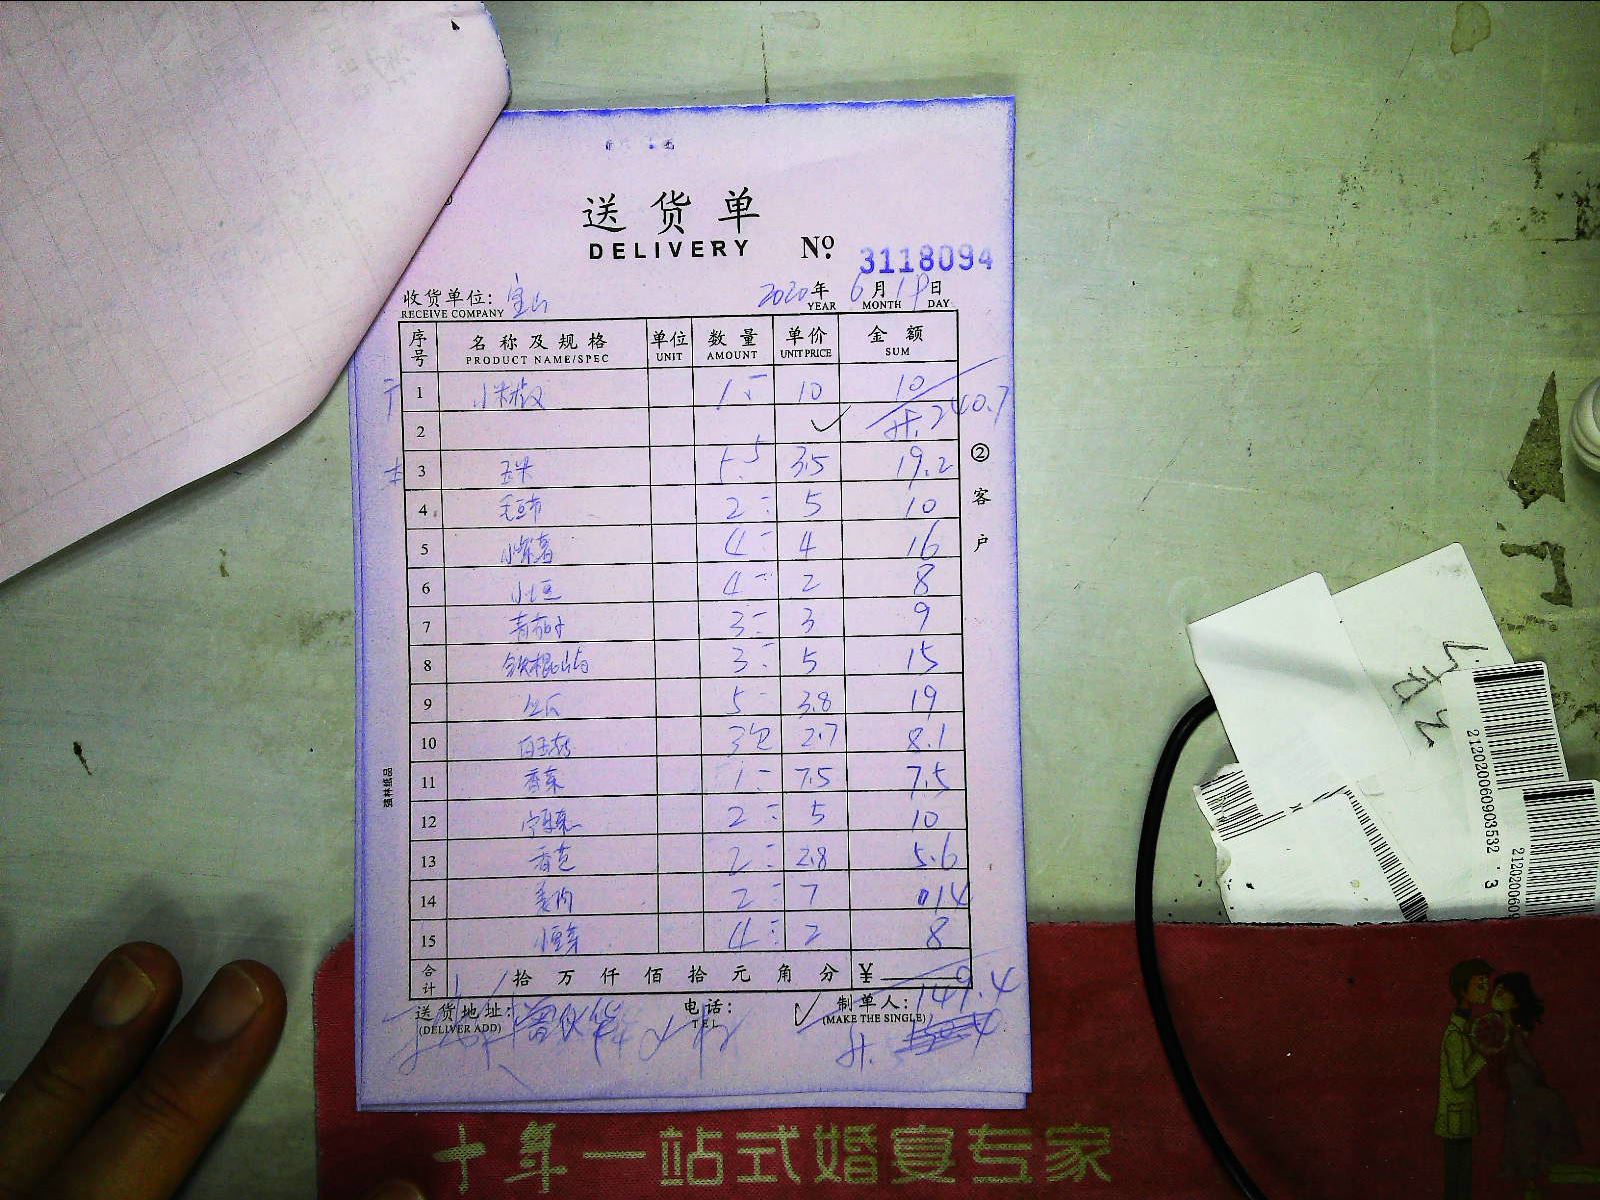 送货单
DELIVERY No. 3118094
收货单位: 宝山 2020年 6月 19日
RECEIVE COMPANY YEAR MONTH DAY
序号 名称及规格 单位 数量 单价 金额
PRODUCT NAME/SPEC UNIT AMOUNT UNIT PRICE SUM
1 小米椒 1 10 10
2 ✓ 计. 240.7
3 玉米 5.5 3.5 19.2
4 毛豆节 2 5 10
5 小紫薯 4 4 16
6 小土豆 4 2 8
7 青茄子 3 3 9
8 铁棍山药 3 5 15
9 丝瓜 5 3.8 19
10 白玉菇 3包 2.7 8.1
11 香菜 1 7.5 7.5
12 2 5 10
13 香芭 2 2.8 5.6
14 姜肉 2 7 14
15 小豆芽 4 2 8
合计 拾 万 仟 佰 拾 元 角 分 ¥ 149.4
送货地址: 电话: ✓ 制单人:
(DELIVER ADD) TEL (MAKE THE SINGLE)
计.
②客户
强林纸品
212020060903532 3
2120200609
十年一站式婚宴专家